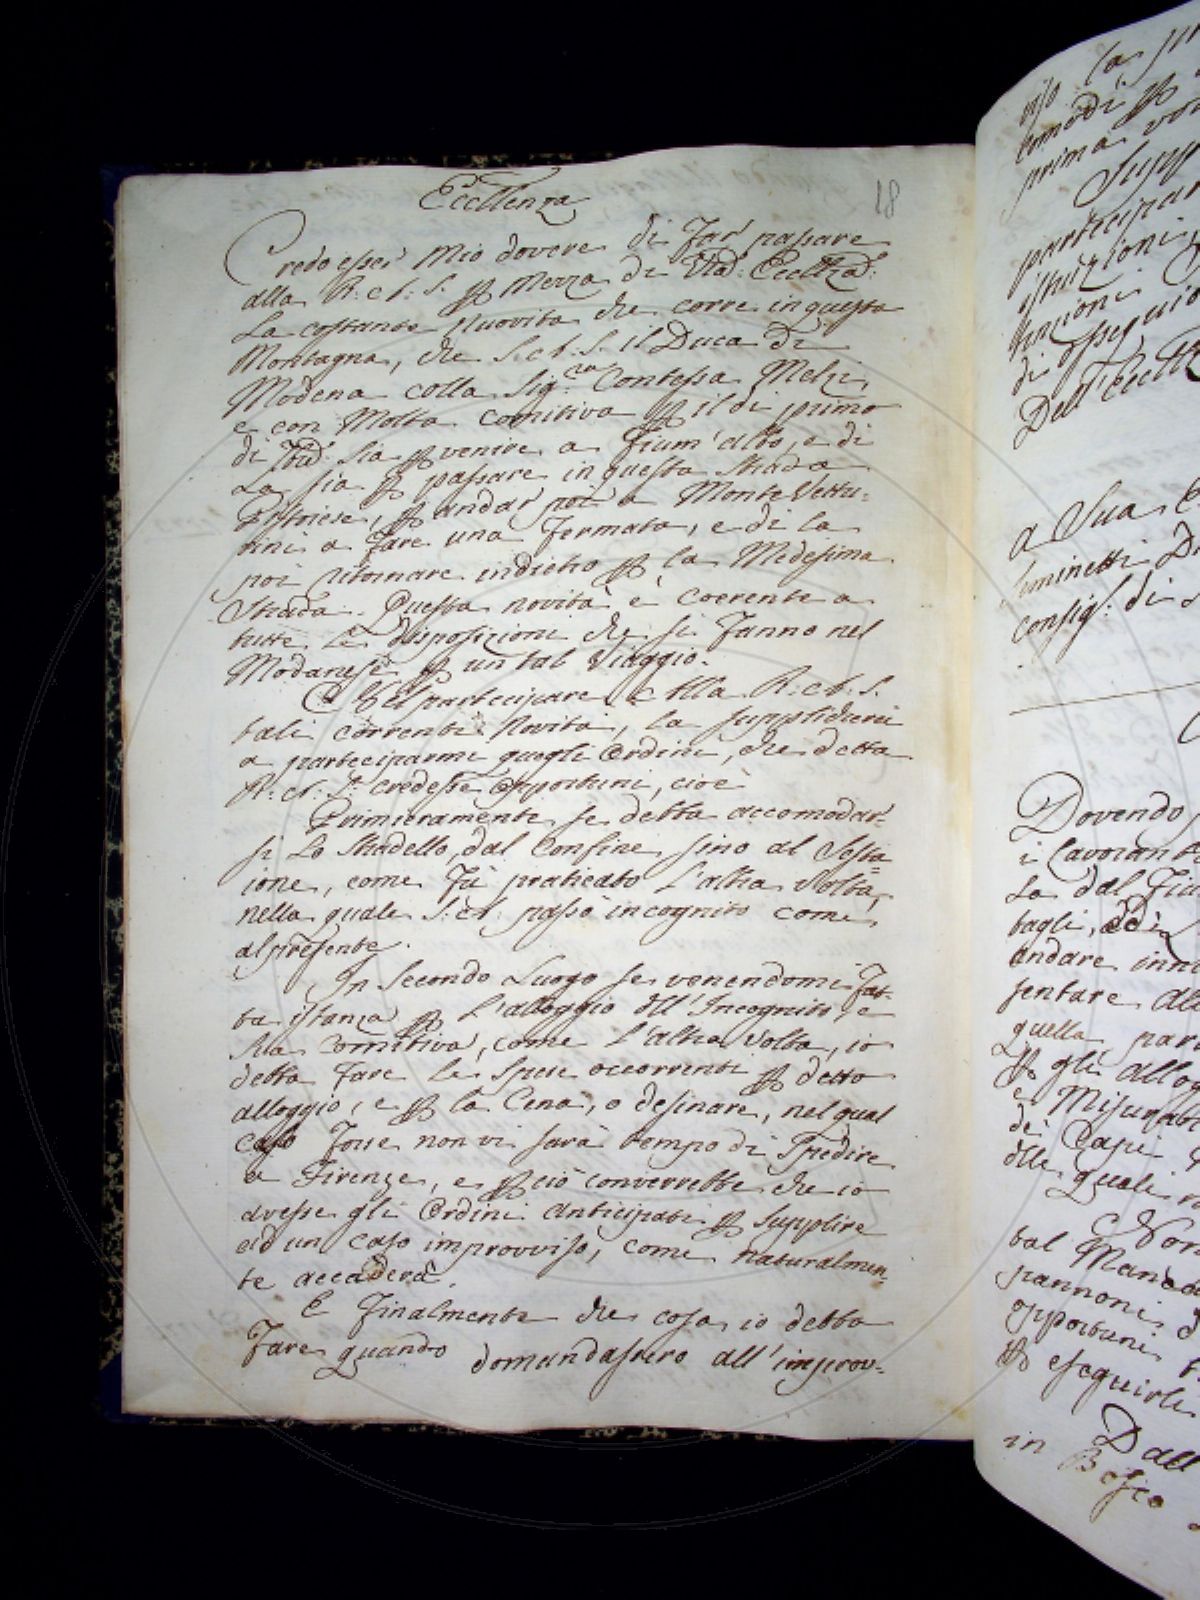 Eccellenza
18
Credo esser Mio dovere di Far passare
alla R: A: S. p Mezza di Vra: Ecclza:
La costante Nuovita che corre in questa
Montagna, che S. A. S. il Duca di
Modena colla Sig.ra Contessa Melzi,
e con Molta comitiva p il di primo
di sia p venire a Fium'albo, e di
La sia p passare in questa Strada
Pistoiese, p andar poi a Monte Vettu:
rini a Fare una Fermata, e di la
poi ritornare indietro p la Medesima
Strada. Questa novità è coerente a
tutte Le disposizioni che si Fanno nel
Modanese p un tal Viaggio.
Nel partecipare Alla R: A: S.
tali correnti Novità, la
a parteciparmi quegli Ordini, che detta
R: A: S: credesse Opportuni, cioè
Primieramente se debba accomodar:
si Lo Stradello, dal Confine sino al Sesta=
ione, come Fù praticato L'altra Volta,
nella quale S: A: passò incognito come
al presente.
In Secondo Luogo se venendomi Fat:
ta istanza p L'alloggio dll'Incognito, e
Sua Comitiva, come l'altra Volta, io
debba Fare Le Spese occorrenti p detto
alloggio, e p la Cena, o desinare, nel qual
caso Forse non vi sarà tempo di Spedire
a Firenze, e p ciò converrebbe che io
avesse gli Ordini Anticipati p Supplire
ad un caso improvviso, come naturalmen:
te accaderà.
E Finalmente che cosa io debba
Fare quando domandassero all'improv:
viso la
comodi p
prima
participar
istruzioni
di ossequio
Dell'Ecclza
a Sua
consig: di
Dovendo
i Lavorant
La dal Fiu
tagli, ed
andare inn
sentare
quella par
p gli allog
e Misurat
dei Capi
dlle quali
Non
tal Manca
pannoni
opportuni
p eseguirli
Dall
in Bosco